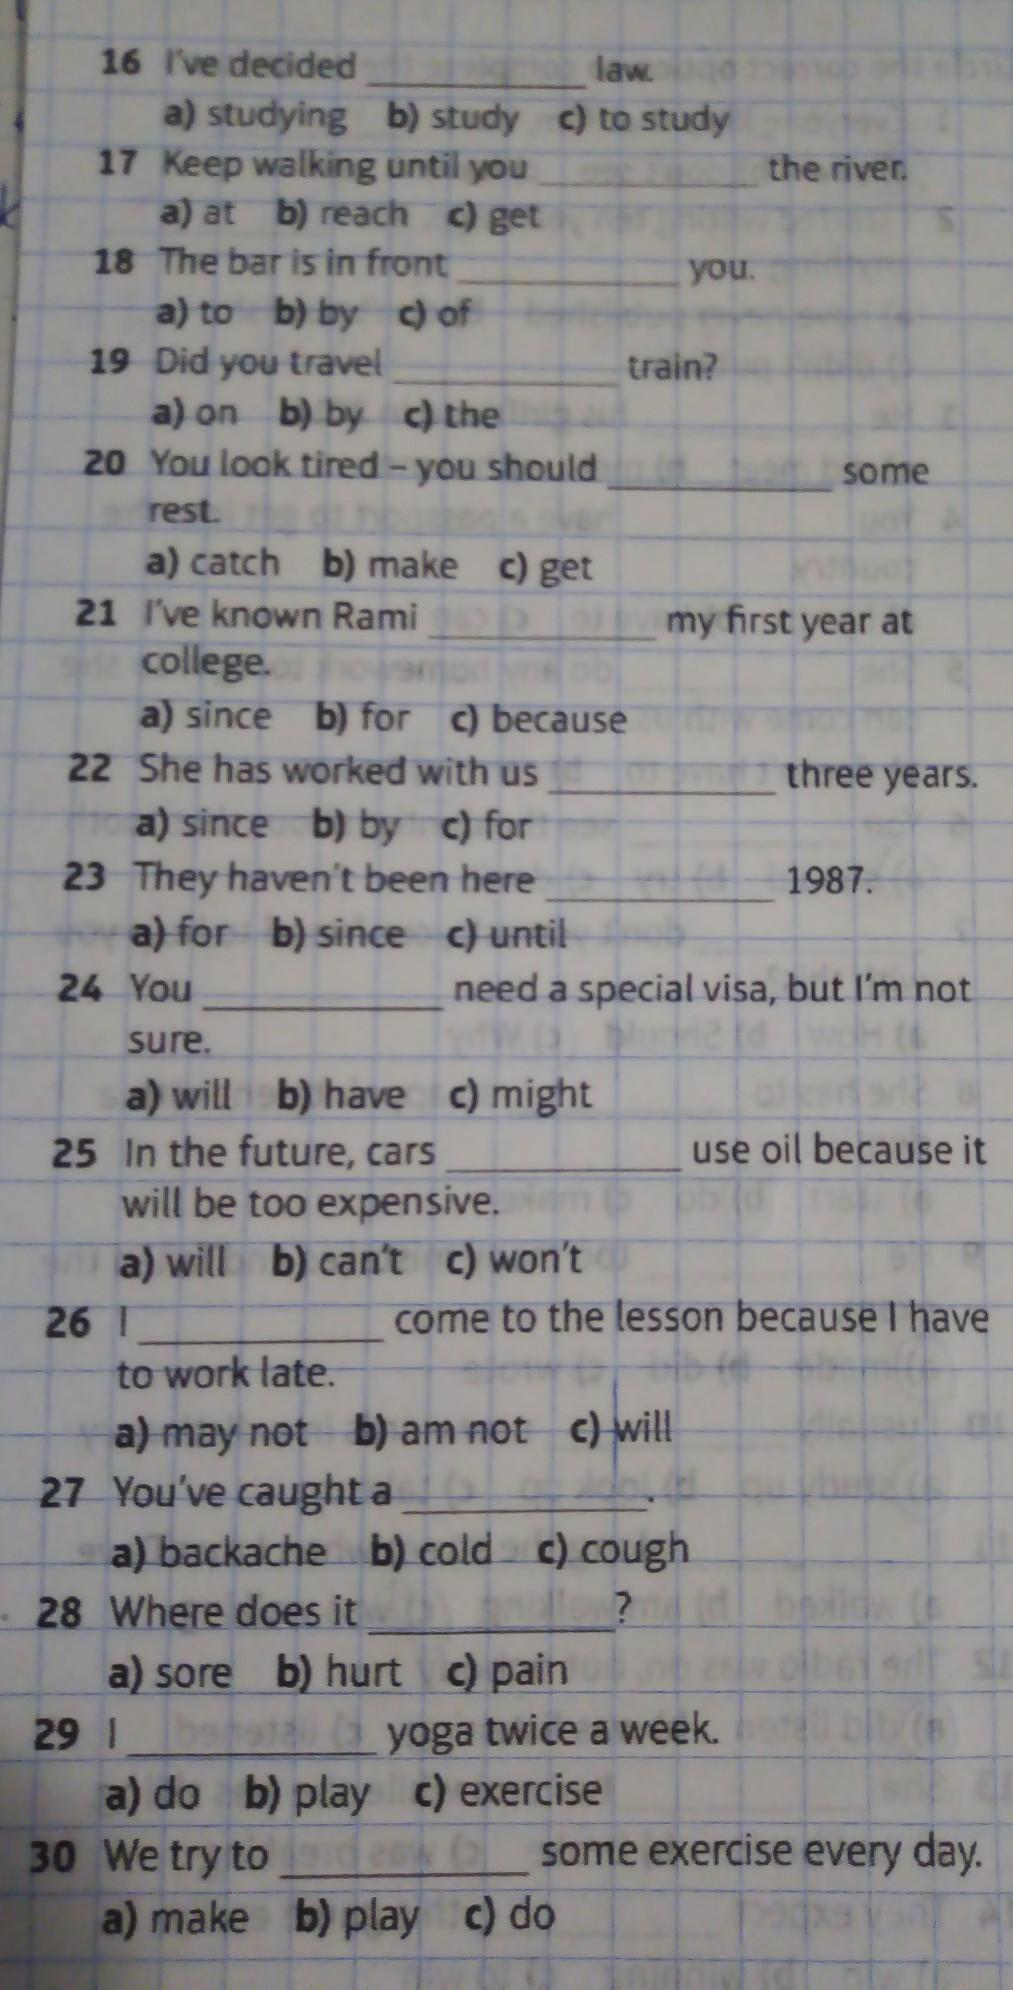 16 I've decided ____________ law.
a) studying b) study c) to study
17 Keep walking until you ____________ the river.
a) at b) reach c) get
18 The bar is in front ____________ you.
a) to b) by c) of
19 Did you travel ____________ train?
a) on b) by c) the
20 You look tired – you should ____________ some
rest.
a) catch b) make c) get
21 I've known Rami ____________ my first year at
college.
a) since b) for c) because
22 She has worked with us ____________ three years.
a) since b) by c) for
23 They haven't been here ____________ 1987.
a) for b) since c) until
24 You ____________ need a special visa, but I'm not
sure.
a) will b) have c) might
25 In the future, cars ____________ use oil because it
will be too expensive.
a) will b) can't c) won't
26 I ____________ come to the lesson because I have
to work late.
a) may not b) am not c) will
27 You've caught a ____________.
a) backache b) cold c) cough
28 Where does it ____________?
a) sore b) hurt c) pain
29 I ____________ yoga twice a week.
a) do b) play c) exercise
30 We try to ____________ some exercise every day.
a) make b) play c) do